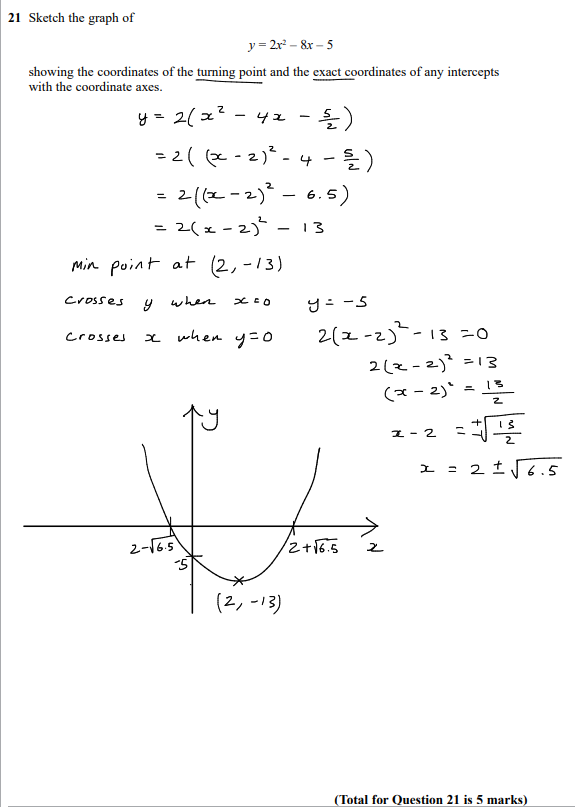 21 Sketch the graph of
y = 2x² – 8x – 5
showing the coordinates of the turning point and the exact coordinates of any intercepts
with the coordinate axes.
y = 2(x² - 4x - 5/2)
= 2((x - 2)² - 4 - 5/2)
= 2((x - 2)² - 6.5)
= 2(x - 2)² - 13
Min point at (2, -13)
Crosses y when x=0 y = -5
Crosses x when y=0 2(x - 2)² - 13 = 0
2(x - 2)² = 13
(x - 2)² = 13/2
x - 2 = ±√(13/2)
x = 2 ± √6.5
y
2-√6.5
2+√6.5
x
-5
(2, -13)
(Total for Question 21 is 5 marks)